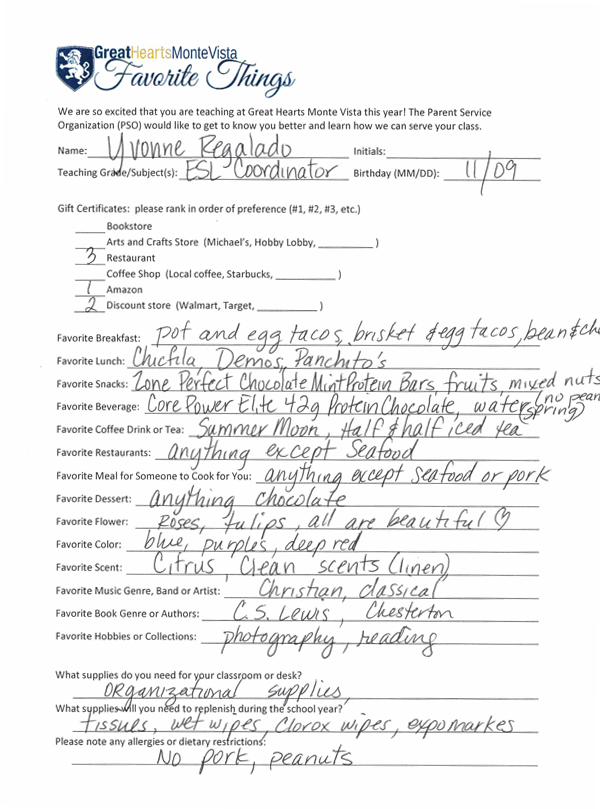 GreatHeartsMonteVista
Favorite Things
We are so excited that you are teaching at Great Hearts Monte Vista this year! The Parent Service
Organization (PSO) would like to get to know you better and learn how we can serve your class.
Name: Yvonne Regalado Initials:
Teaching Grade/Subject(s): ESL Coordinator Birthday (MM/DD): 11/09
Gift Certificates: please rank in order of preference (#1, #2, #3, etc.)
Bookstore
Arts and Crafts Store (Michael's, Hobby Lobby, __________ )
3 Restaurant
Coffee Shop (Local coffee, Starbucks, __________ )
1 Amazon
2 Discount store (Walmart, Target, __________ )
Favorite Breakfast: pot and egg tacos, brisket & egg tacos, bean & ch
Favorite Lunch: Chicfila, Demos, Panchito's
Favorite Snacks: Zone Perfect Chocolate Mint Protein Bars, fruits, mixed nuts
(no pean
Favorite Beverage: Core Power Elite 42g Protein Chocolate, water (spring)
Favorite Coffee Drink or Tea: Summer Moon, Half & half iced tea
Favorite Restaurants: anything except Seafood
Favorite Meal for Someone to Cook for You: anything except seafood or pork
Favorite Dessert: anything chocolate
Favorite Flower: Roses, tulips, all are beautiful ♡
Favorite Color: blue, purples, deep red
Favorite Scent: Citrus, Clean scents (linen)
Favorite Music Genre, Band or Artist: Christian, classical
Favorite Book Genre or Authors: C.S. Lewis, Chesterton
Favorite Hobbies or Collections: photography, reading
What supplies do you need for your classroom or desk?
Organizational supplies,
What supplies will you need to replenish during the school year?
tissues, wet wipes, Clorox wipes, expo markes
Please note any allergies or dietary restrictions:
No pork, peanuts